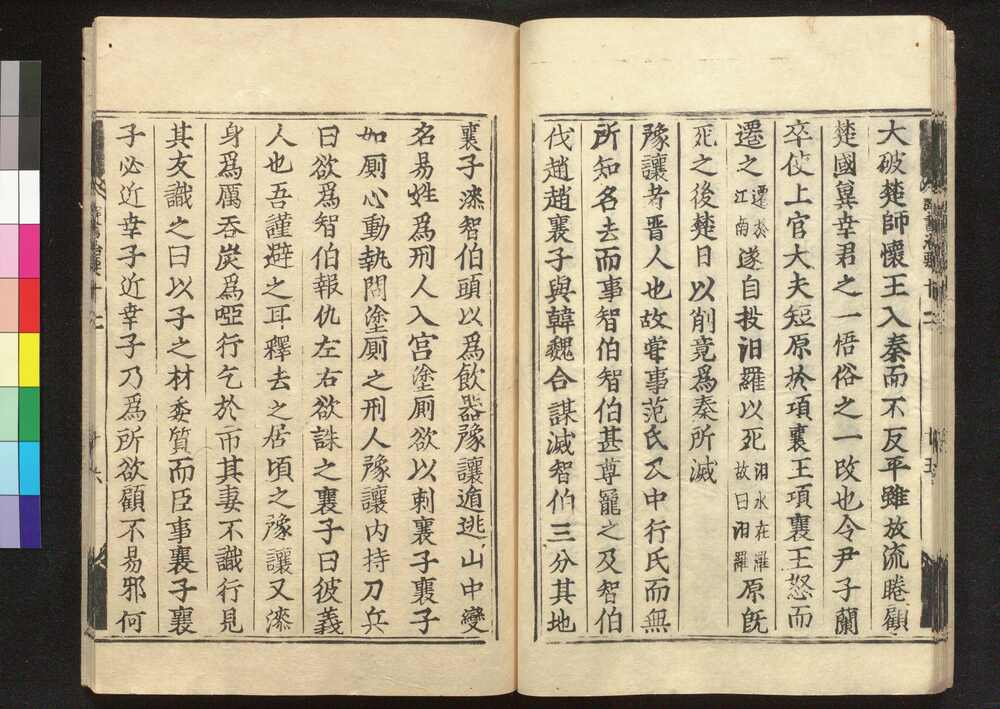 大破楚師懷王入秦而不反平雖放流睠顧
楚國兾幸君之一悟俗之一改也令尹子蘭
卒使上官大夫短原於項襄王項襄王怒而
遷之遷於江南遂自投汨羅以死汨水在羅故曰汨羅原旣
死之後楚日以削竟爲秦所滅
豫讓者晋人也故甞事范氏及中行氏而無
所知名去而事智伯智伯甚尊寵之及智伯
伐趙趙襄子與韓魏合謀滅智伯三分其地
襄子漆智伯頭以爲飲器豫讓遁逃山中變
名易姓爲刑人入宫塗厠欲以刺襄子襄子
如厠心動執問塗厠之刑人豫讓内持刀兵
曰欲爲智伯報仇左右欲誅之襄子曰彼義
人也吾謹避之耳釋去之居頃之豫讓又漆
身爲厲吞炭爲啞行乞於市其妻不識行見
其友識之曰以子之材委質而臣事襄子襄
子必近幸子近幸子乃爲所欲顧不易邪何